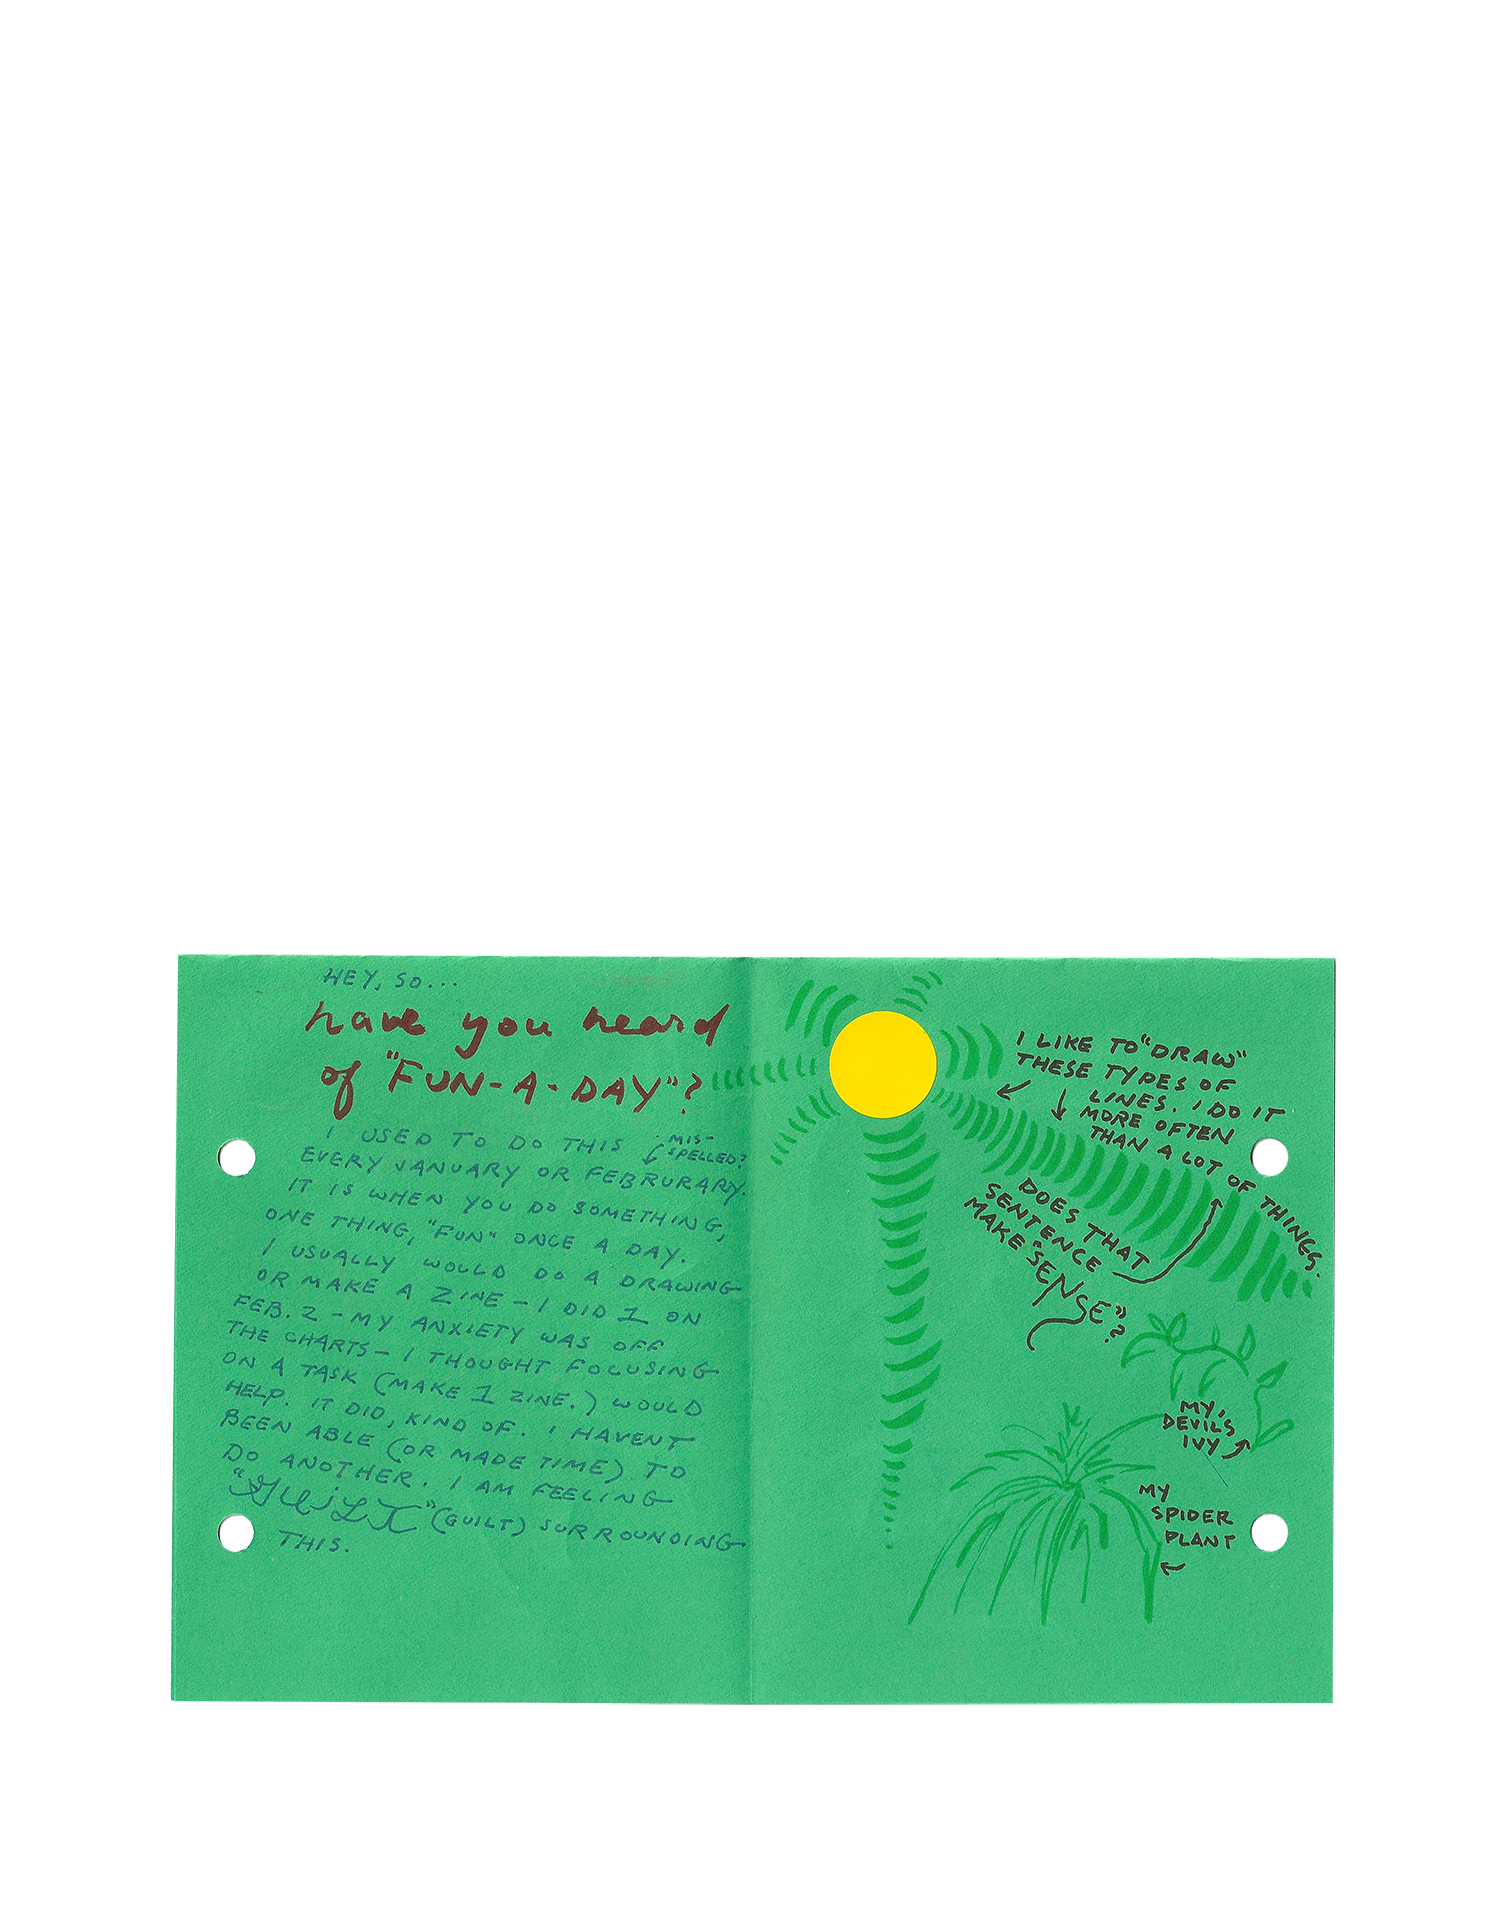 HEY, SO...
have you heard
of "FUN-A-DAY"?
I USED TO DO THIS
MIS-
SPELLED?
EVERY JANUARY OR FEBRURARY.
IT IS WHEN YOU DO SOMETHING,
ONE THING, "FUN" ONCE A DAY.
I USUALLY WOULD DO A DRAWING
OR MAKE A ZINE - I DID 1 ON
FEB. 2 - MY ANXIETY WAS OFF
THE CHARTS - I THOUGHT FOCUSING
ON A TASK (MAKE 1 ZINE.) WOULD
HELP. IT DID, KIND OF. I HAVENT
BEEN ABLE (OR MADE TIME) TO
DO ANOTHER. I AM FEELING
"GUiLT" (GUILT) SURROUNDING
THIS.
I LIKE TO "DRAW"
THESE TYPES OF
LINES. I DO IT
MORE OFTEN
THAN A LOT OF THINGS.
DOES THAT
SENTENCE
MAKE "SENSE"?
MY,
DEVILS
IVY
MY
SPIDER
PLANT